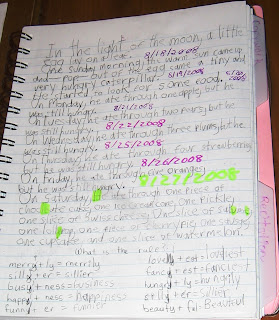 In the light of the moon, a little
egg lay on a leaf. 8/18/2008
One Sunday morning the warm sun came up
and - pop! - out of the egg came a tiny and
very hungry caterpillar. 8/19/2008 8/20/2008
He started to look for some food.
On Monday, he ate through one apple, but he
was still hungry. 8/21/2008
On Tuesday, he ate through two pears, but he
was still hungry. 8/22/2008
On Wednesday, he ate through three plums, but he
was still hungry. 8/25/2008
On Thursday, he ate through four strawberries,
but he was still hungry. 8/26/2008
On Friday, he ate through five oranges,
but he was still hungry. 8/27/2008
On Saturday, he ate through one piece of
chocolate cake, one ice cream cone, one pickle,
one slice of Swiss cheese, one slice of salami,
one lollipop, one piece of cherry pie, one sausage,
one cupcake, and one slice of watermelon.
What is the rule?
merry + ly = merrily
lovely + est = loveliest
silly + er = sillier
fancy + est = fanciest
busy + ness = business
hungry + ly = hungrily
happy + ness = happiness
silly + er = sillier
funny + er = funnier
beauty + ful = beautiful